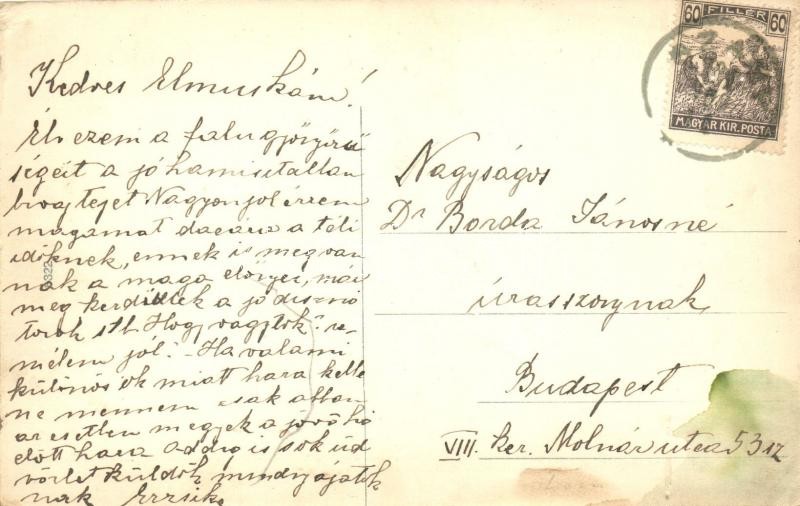 Kedves Elmuskám!
Élvezem a falu gyönyörű
ségeit a jó hamisitatlan
bivajtejet Nagyon jol érzem
magamat dacára a téli
időknek, ennek is megvan
nak a maga előnyei, már
meg kezdődtek a jó disznó
torok stb. Hogy vagytok? re-
mélem jól? - Ha valami
különös ok miatt haza kelle
ne mennem csak abban
az esetben megyek a jövő hó
előtt haza addig is sok üd
vözletküldök mindnyájatok
nak Erzsike
60 FILLÉR 60
MAGYAR KIR. POSTA
Nagyságos
Dr Borda Jánosné
úrasszonynak
Budapest
VIII. ker. Molnár utca 53 sz
322